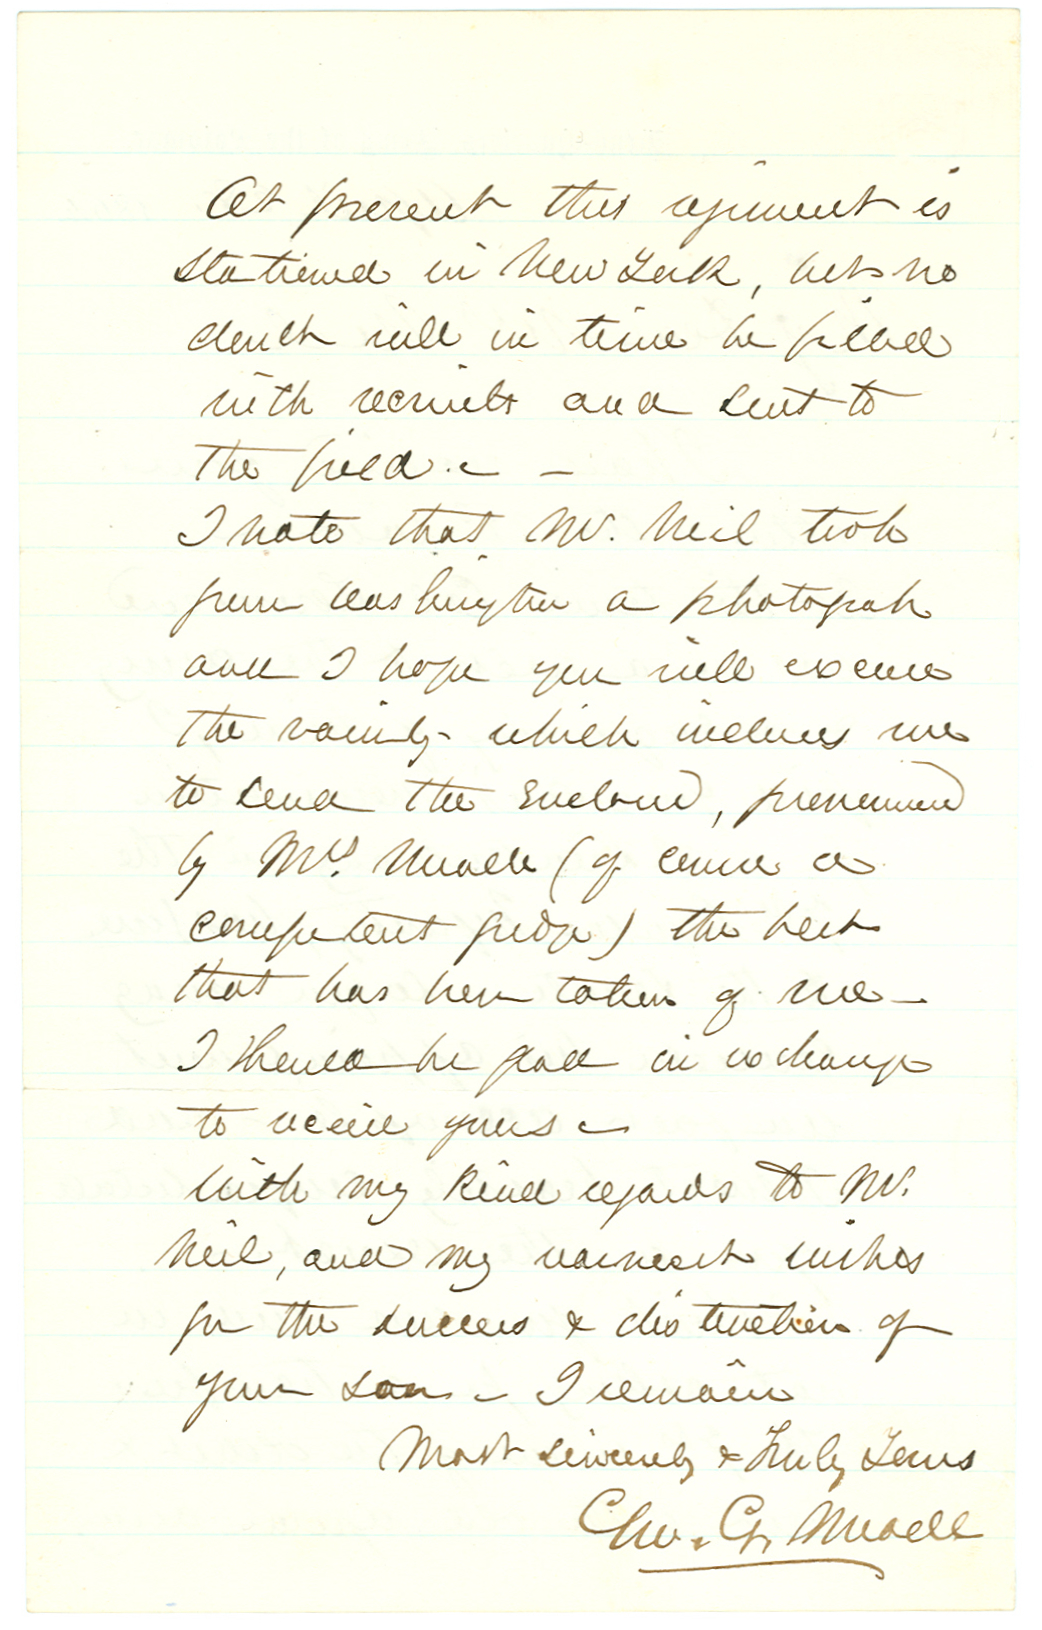 At present this regiment is
stationed in New York, but no
doubt will in time be filled
with recruits and sent to
the field. — —
I note that Mr. Neil took
from Washington a photograph
and I hope you will excuse
the vanity which induces me
to send the Enclosed, pronounced
by Mrs. (of course a
competent judge) the best
that has been taken of me —
I should be glad in exchange
to receive yours —
With my kind regards to Mr.
Neil, and my warmest wishes
for the success & distinction of
your son — I remain
Most Sincerely & Truly Yours
G.